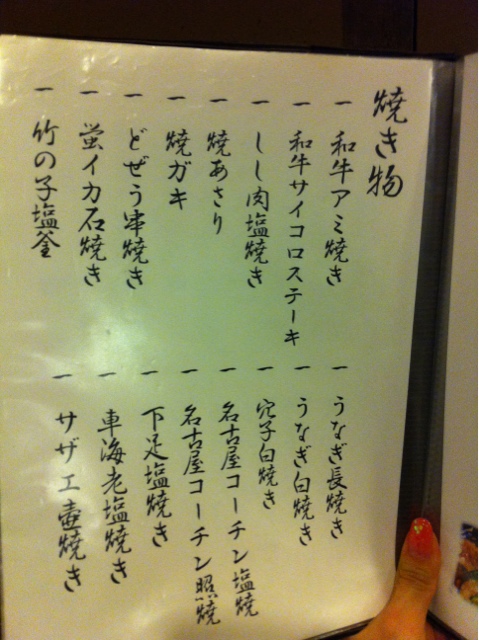 焼き物
一 和牛アミ焼き
一 和牛サイコロステーキ
一 しし肉塩焼き
一 焼あさり
一 焼ガキ
一 どぜう串焼き
一 蛍イカ石焼き
一 竹の子塩釜
一 うなぎ長焼き
一 うなぎ白焼き
一 穴子白焼き
一 名古屋コーチン塩焼
一 名古屋コーチン照焼
一 下足塩焼き
一 車海老塩焼き
一 サザエ壺焼き